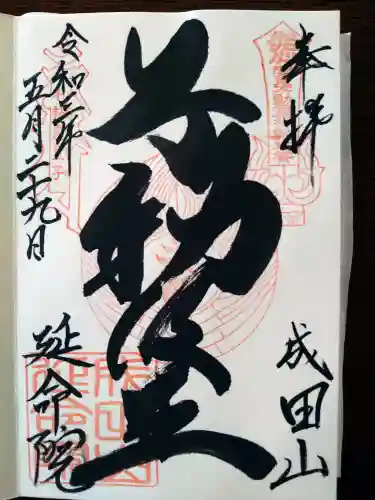 奉拝
成田山
不動堂
令和二年
五月二十九日
延命院